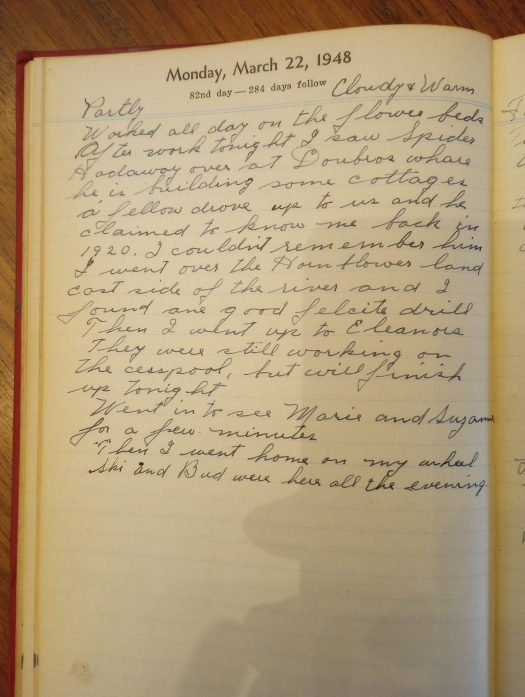 Monday, March 22, 1948
82nd day — 284 days follow
Cloudy & Warm
Partly
Worked all day on the flower beds
After work tonight I saw Spider
Hadaway over at Doubros whare
he is building some cottages
a fellow drove up to us and he
claimed to know me back in
1920. I couldn't remember him
I went over the Hornblower land
east side of the river and I
found one good felcite drill
Then I went up to Eleanors
They were still working on
the cesspool, but will finish
up tonight
Went in to see Marie and Suzanne
for a few minutes
Then I went home on my wheel
Ski and Bud were here all the evening.